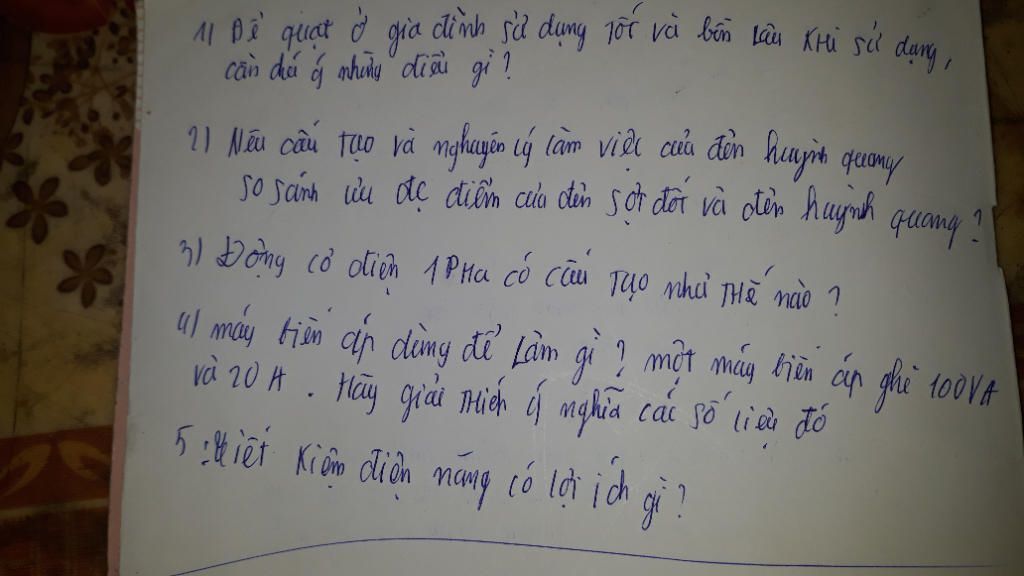 1) Để quạt ở gia đình sử dụng tốt và bền lâu khi sử dụng,
cần chú ý những điều gì?
2) Nêu cấu tạo và nghuyên lý làm việc của đèn huỳnh quang
so sánh ưu đặc điểm của đèn sợt đốt và đèn huỳnh quang?
3) Động cơ điện 1 pha có cấu tạo như thế nào?
4) máy biến áp dùng để làm gì? một máy biến áp ghi 100VA
và 20A. Hãy giải thích ý nghĩa các số liệu đó
5: tiết kiệm điện năng có lợi ích gì?